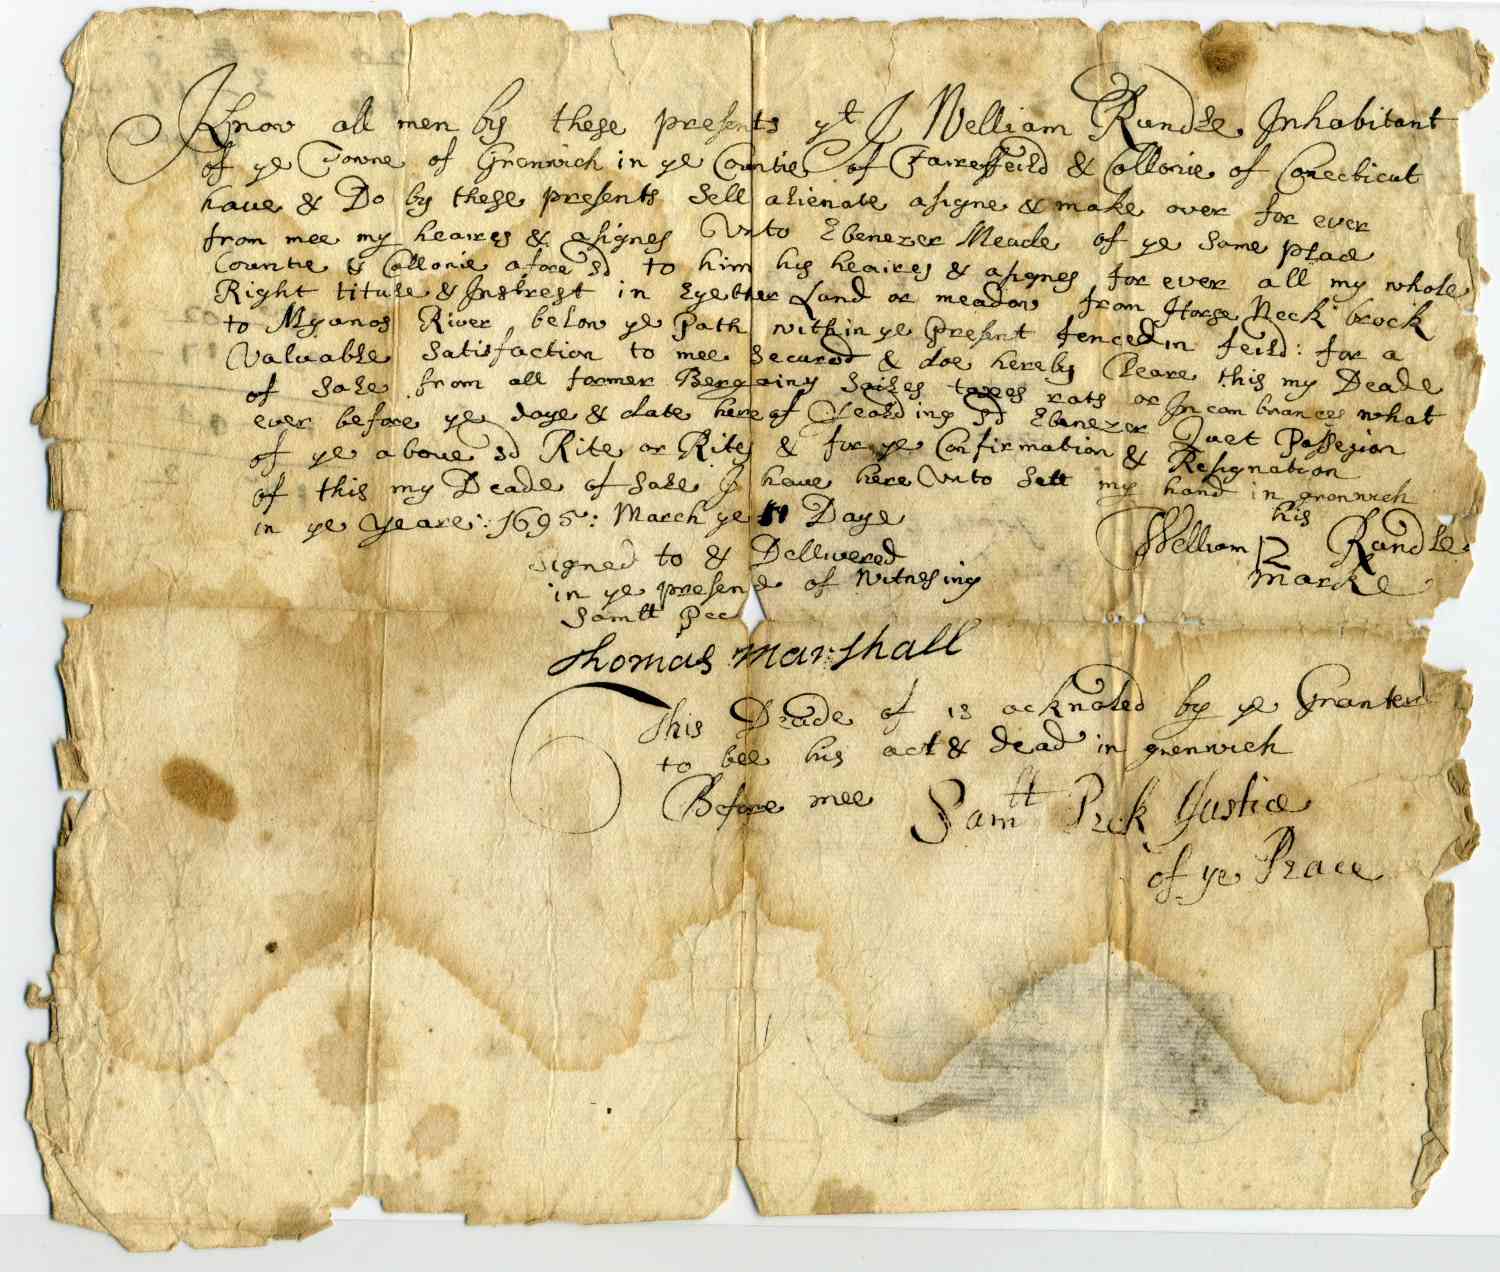 Know all men by these presents yt I William Rundle Inhabitant
of ye Towne of Grenwich in ye Countie of Faireffeild & Collonie of Conecticut
have & Do by these presents Sell alienate asigne & make over for ever
from mee my heaires & asignes Unto Ebenezer Meade of ye same place
Countie & Collonie afore sd to him his heaires & asignes for ever all my whole
Right titule & Instrest in Eyether Land or meadow from Horse Neck brock
to Myanos River below ye Path within ye Present fenced in feild: for a
Valuable Satisfaction to mee Secured & doe hereby Cleare this my Deade
of Sale from all former Bergainy Sailes taxes rats or Incombrances what
ever before ye daye & date here of Yealding sd Ebenezer Quet Possesion
of ye above sd Rite or Rites & for ye Confirmation & Resignation
of this my Deade of Sale I have here Unto Sett my hand in grenwich
in ye yeare: 1695: March ye 11 Daye
his
William R Rundle
marke
Signed to & Dellivered
in ye presence of Witnesing
Samll Pec
Thomas Marshall
This Deade of is acknoled by ye Granter
to bee his act & dead in grenwich
Before mee Samll Peck Justice
of ye Peace